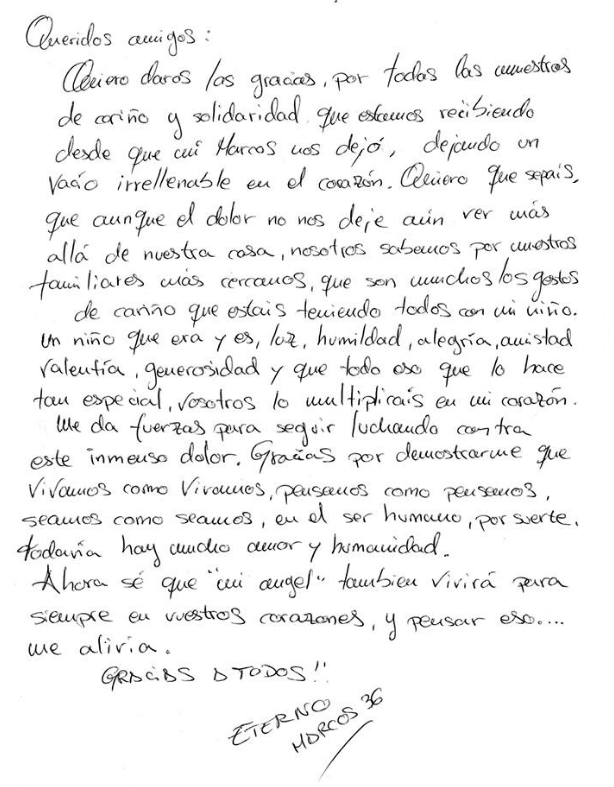 Queridos amigos:
Quiero daros las gracias, por todas las muestras
de cariño y solidaridad que estamos recibiendo
desde que mi Marcos nos dejó, dejando un
vacío irrellenable en el corazón. Quiero que sepais,
que aunque el dolor no nos deje aún ver más
allá de nuestra casa, nosotros sabemos por nuestros
familiares más cercanos, que son muchos los gestos
de cariño que estais teniendo todos con mi niño.
Un niño que era y es, luz, humildad, alegría, amistad
valentía, generosidad y que todo eso que lo hace
tan especial, vosotros lo multiplicais en mi corazón.
Me da fuerzas para seguir luchando contra
este inmenso dolor. Gracias por demostrarme que
vivamos como vivamos, pensemos como pensemos,
seamos como seamos, en el ser humano, por suerte,
todavía hay mucho amor y humanidad.
Ahora sé que "mi angel" tambien vivirá para
siempre en vuestros corazones, y pensar eso....
me alivia.
GRACIAS A TODOS!!
ETERNO
MARCOS 36